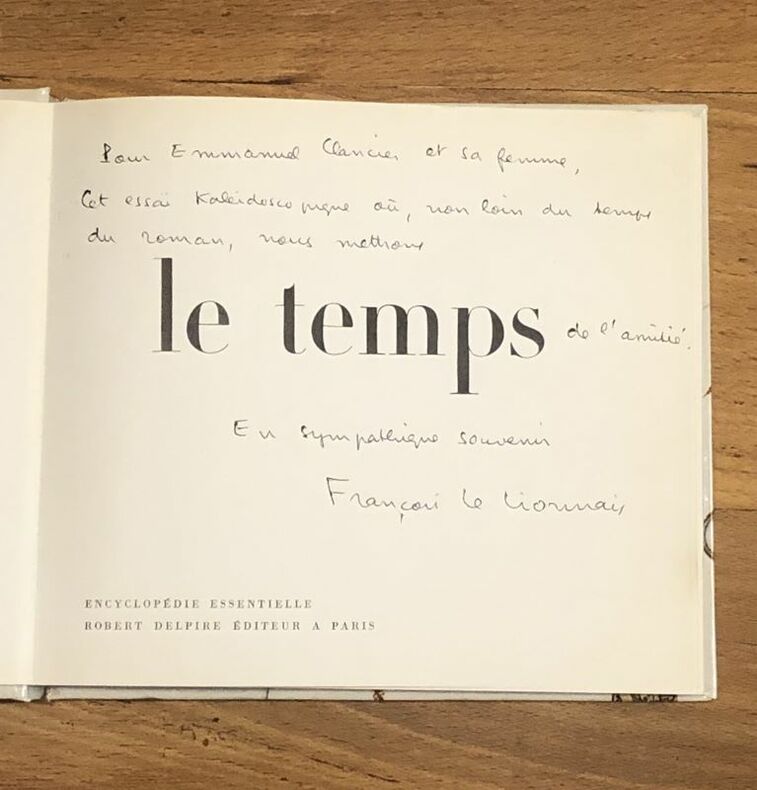 Pour Emmanuel Clancier et sa femme,
Cet essai Kaleidoscopique où, non loin du temps
du roman, nous mettrons
le temps de l'amitié.
En sympathique souvenir
François Le Lionnais
ENCYCLOPÉDIE ESSENTIELLE
ROBERT DELPIRE ÉDITEUR A PARIS